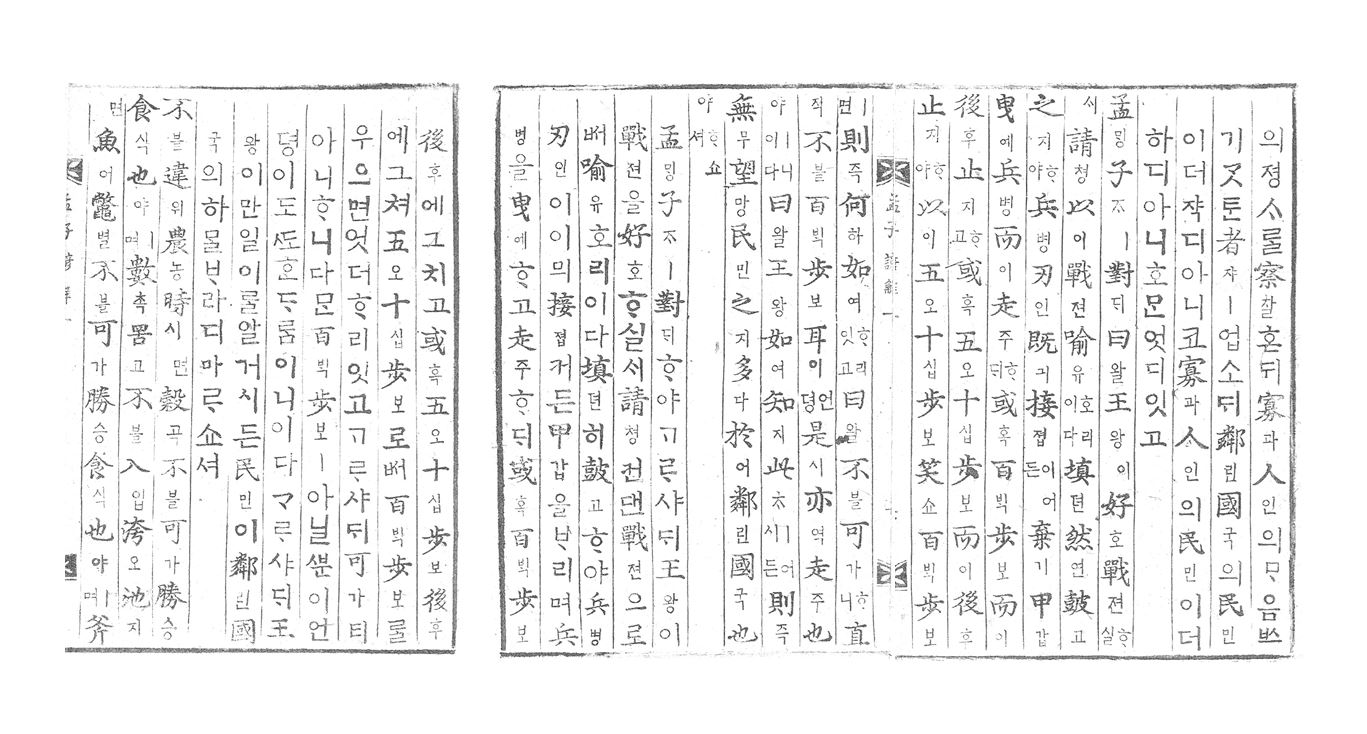 의졍ᄉᆞᄅᆞᆯ察찰혼ᄃᆡ寡과人인의ᄆᆞ음ᄡᅳ
기ᄀᆞᆺ튼者쟈ㅣ업소ᄃᆡ鄰린國국의民민
이더쟉디아니코寡과人인의民민이더
하디아니호ᄆᆞᆫ엇디잇고
孟ᄆᆡᆼ子ᄌᆞㅣ對ᄃᆡ曰왈王왕이好호戰젼ᄒᆞ실
ᄉᆡ請쳥以이戰젼喩유호리이다塡뎐然연鼓고
之지ᄒᆞ야兵병刃인既긔接졉이어든棄기甲갑
曳예兵병而이走주호ᄃᆡ或혹百ᄇᆡᆨ步보而이
後후止지ᄒᆞ고或혹五오十십步보而이後후
止지ᄒᆞ야以이五오十십步보笑쇼百ᄇᆡᆨ步보
孟子諺解一
ㅣ면則즉何하如여ᄒᆞ리잇고曰왈不불可가ᄒᆞ니直
직不불百ᄇᆡᆨ步보耳이언뎡是시亦역走주也
야ㅣ니이다曰왈王왕如여知지此ᄎᆞㅣ시어든則즉
無무望망民민之지多다於어鄰린國국也
야ᄒᆞ쇼셔
孟ᄆᆡᆼ子ᄌᆞㅣ對ᄃᆡᄒᆞ야ᄀᆞᄅᆞ샤ᄃᆡ王왕이
戰젼을好호ᄒᆞ실ᄉᆡ請쳥컨댄戰젼으로
ᄡᅥ喩유호리이다塡뎐히鼓고ᄒᆞ야兵병
刃인이이믜接졉거든甲갑을ᄇᆞ리며兵
병을曳예ᄒᆞ고走주호ᄃᆡ或혹百ᄇᆡᆨ步보
後후에그치고或혹五오十십步보後후
에그쳐五오十십步보로ᄡᅥ百ᄇᆡᆨ步보ᄅᆞᆯ
우으면엇더ᄒᆞ리잇고ᄀᆞᄅᆞ샤ᄃᆡ可가티
아니ᄒᆞ니다ᄆᆞᆫ百ᄇᆡᆨ步보ㅣ아닐ᄲᅮᆫ이언
뎡이도ᄯᅩᄒᆞᆫᄃᆞᄅᆞᆷ이니이다ᄀᆞᄅᆞ샤ᄃᆡ王
왕이만일이ᄅᆞᆯ알거시든民민이鄰린國
국의하믈ᄇᆞ라디마ᄅᆞ쇼셔
不불違위農농時시면穀곡不불可가勝승
食식也야ㅣ며數촉罟고不불入입洿오池지
면魚어鼈별不불可가勝승食식也야ㅣ며斧
孟子諺解一